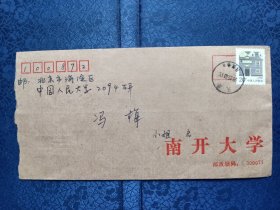 100872
邮:北京市海淀区
中国人民大学2094信箱
冯 小姐 启
南开大学
邮政编码:300071